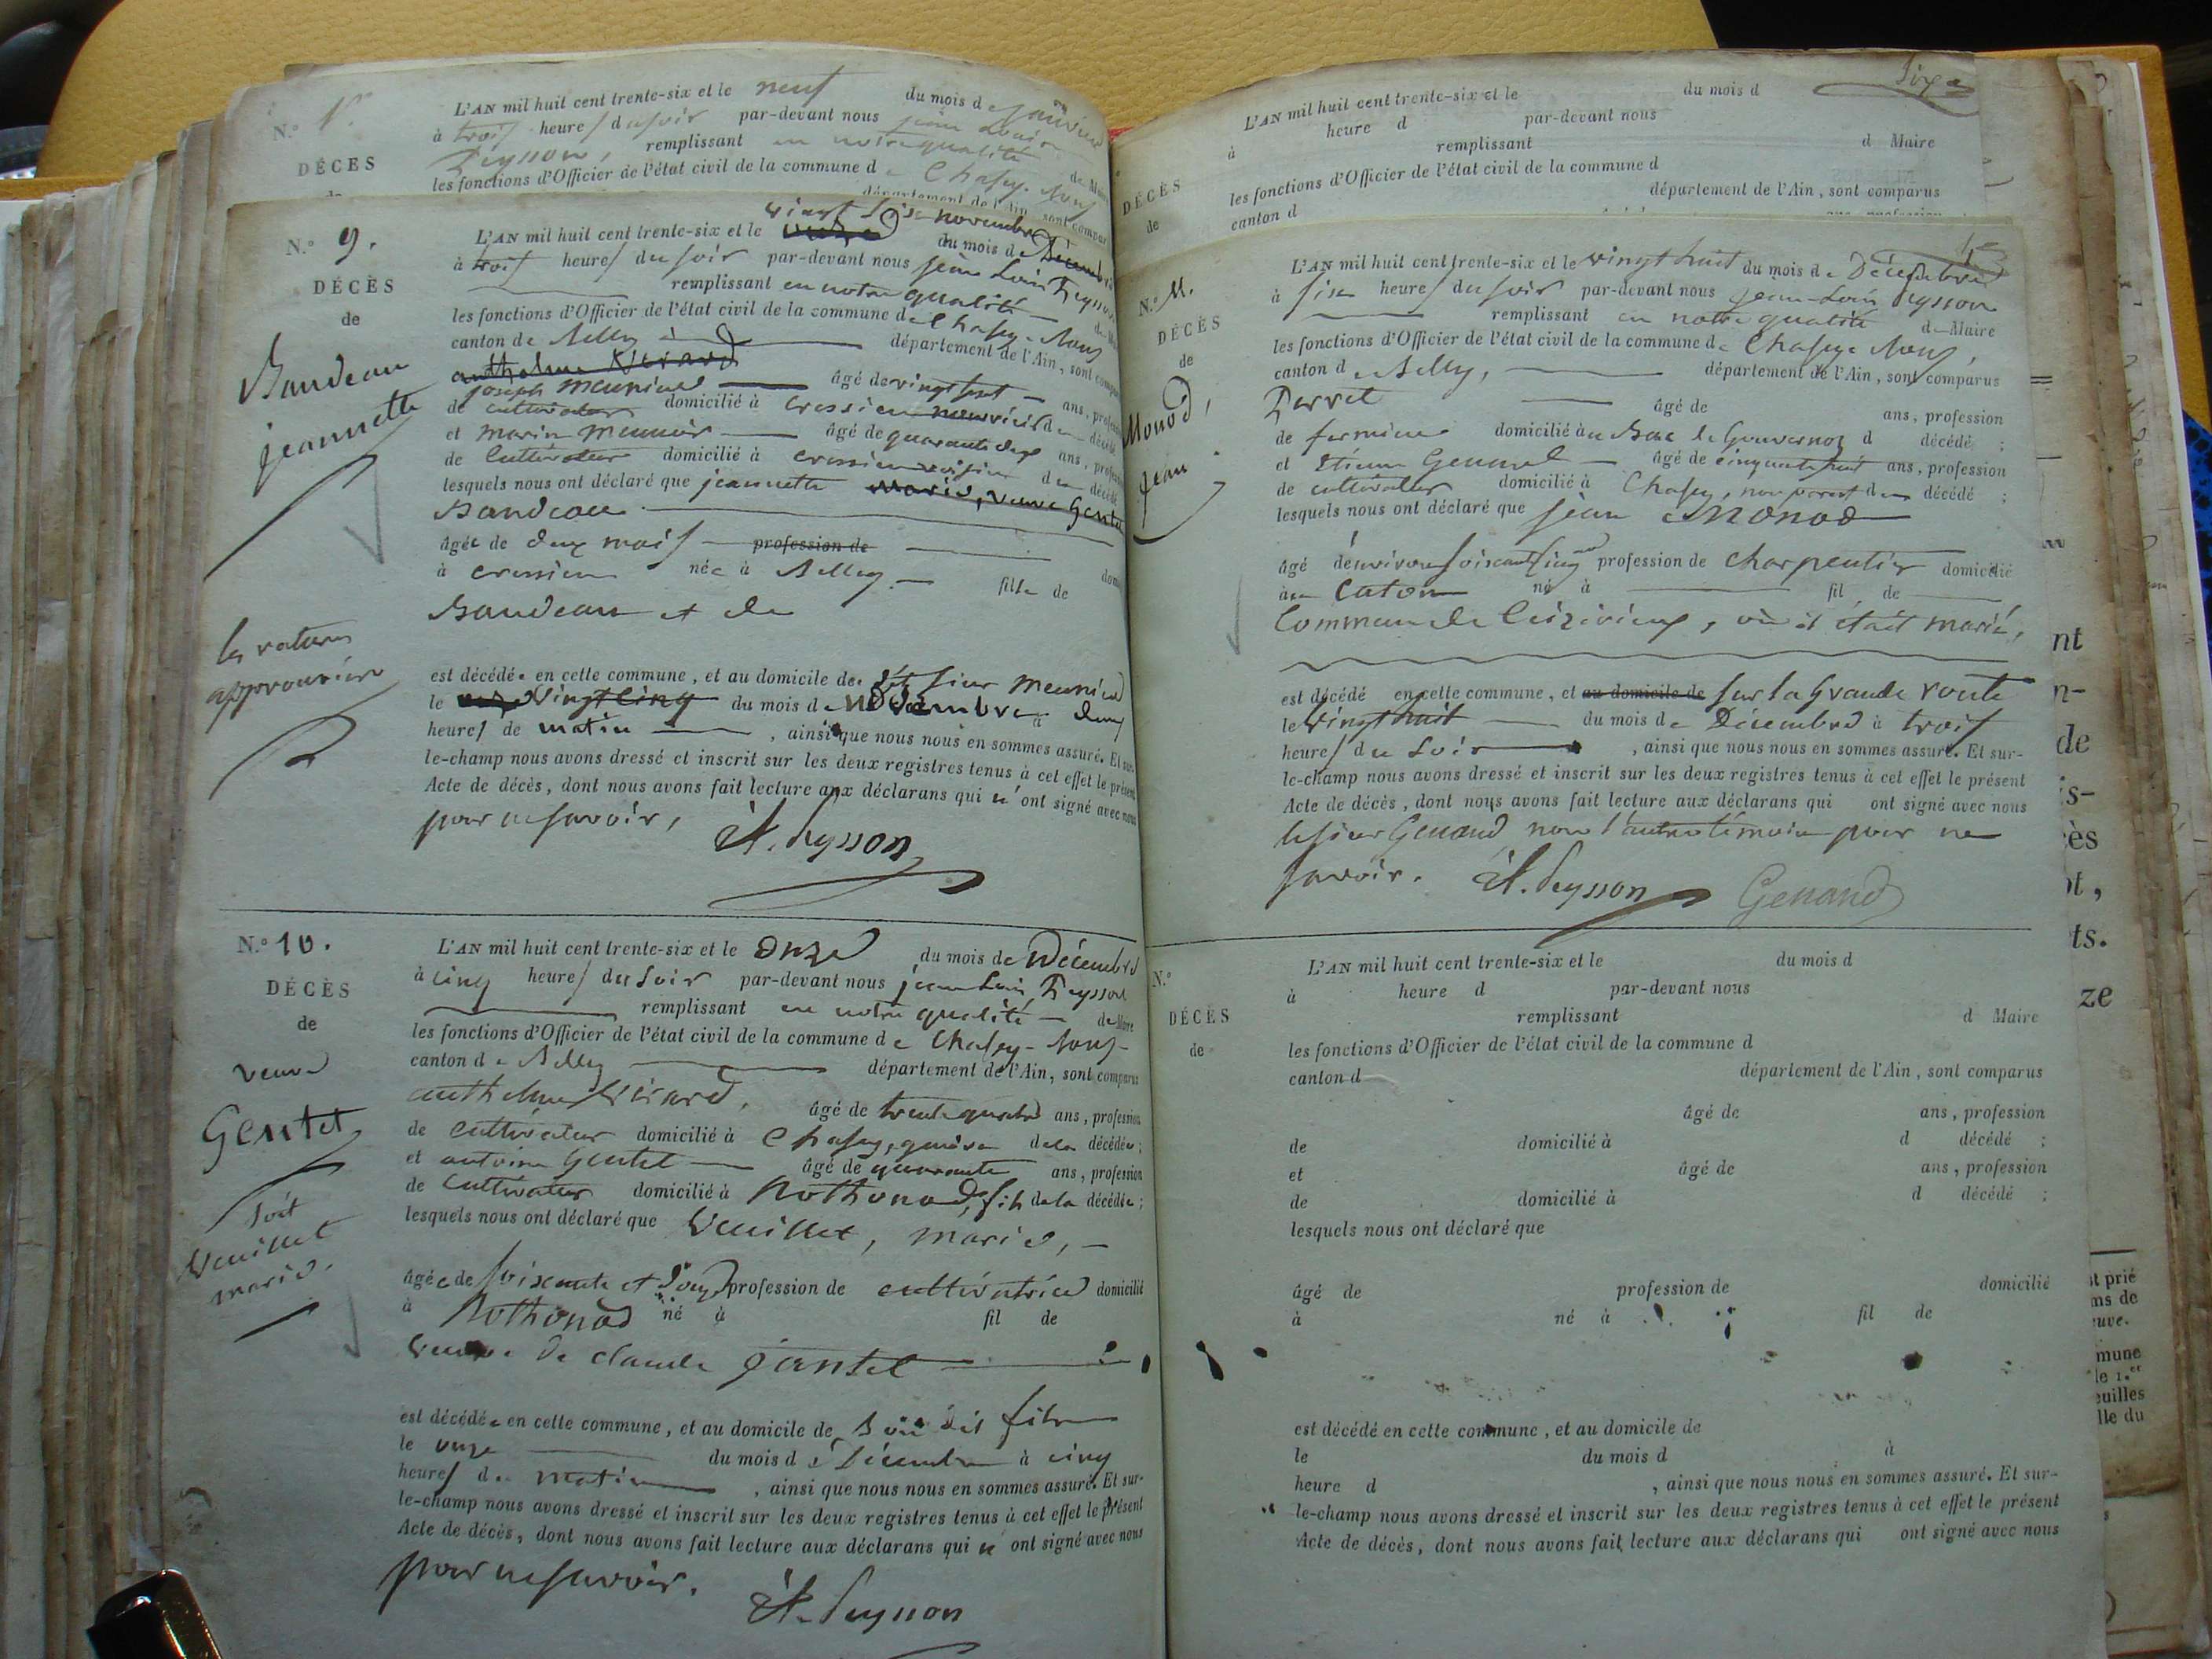 N.° 1.er
DÉCÈS
L'AN mil huit cent trente-six et le neuf du mois de Janvier
à trois heures du soir par-devant nous jean Louis
Peysson, remplissant en notre qualité de Maire
les fonctions d'Officier de l'état civil de la commune de Chasey-Bons
département de l'Ain, sont comparus
N.° 9.
DÉCÈS
de
Baudeau
jeannette
les ratures
approuvées
L'AN mil huit cent trente-six et le vingt six novembre du mois de Décembre
à trois heures du soir par-devant nous jean Louis Peysson
remplissant en notre qualité de Maire
les fonctions d'Officier de l'état civil de la commune de Chasey-Bons
canton de Belley département de l'Ain, sont comparus
anthelme Girard
joseph meunier âgé de vingt sept ans, profession
de cultivateur domicilié à Cressieu nourricier de décédé
et marin meunier âgé de quarante deux ans, profession
de Cultivateur domicilié à cressieu voisin de décédé
lesquels nous ont déclaré que jeannette marie, veuve Gentet
Baudeau
âgée de deux mois profession de
à cressieu née à Belley fille de
Baudeau et de
est décédée en cette commune, et au domicile de dit sieur meunier
le onze vingt cinq du mois de novembre à deux
heures de matin, ainsi que nous nous en sommes assuré. Et sur-
le-champ nous avons dressé et inscrit sur les deux registres tenus à cet effet le présent
Acte de décès, dont nous avons fait lecture aux déclarans qui n'ont signé avec nous
pour ne savoir,
Peysson
N.° 10.
DÉCÈS
de
veuve
Gentet
soit
Veuillet
marie.
L'AN mil huit cent trente-six et le onze du mois de Décembre
à cinq heures du soir par-devant nous jean Louis Peysson
remplissant en notre qualité de Maire
les fonctions d'Officier de l'état civil de la commune de Chasey-Bons
canton de Belley département de l'Ain, sont comparus
anthelme Girard, âgé de trente quatre ans, profession
de cultivateur domicilié à Chasey, de la décédée;
et antoine Gentet âgé de quarante ans, profession
de cultivateur domicilié à Rothonod, fils de la décédée;
lesquels nous ont déclaré que Veuillet, marie,
âgée de soixante et douze profession de cultivatrice domicilié
à Rothonod né à fil de
veuve de claude gentet
est décédée en cette commune, et au domicile de son dit fils
le onze du mois de Décembre à cinq
heures de matin, ainsi que nous nous en sommes assuré. Et sur-
le-champ nous avons dressé et inscrit sur les deux registres tenus à cet effet le présent
Acte de décès, dont nous avons fait lecture aux déclarans qui n'ont signé avec nous
pour ne savoir.
Peysson
DÉCÈS
de
L'AN mil huit cent trente-six et le du mois d
à heure d par-devant nous
remplissant d Maire
les fonctions d'Officier de l'état civil de la commune d
canton d département de l'Ain, sont comparus
N.° 11.
DÉCÈS
de
Monod,
jean
L'AN mil huit cent trente-six et le vingt huit du mois de Décembre
à six heures du soir par-devant nous jean-Louis Peysson
remplissant en notre qualité de Maire
les fonctions d'Officier de l'état civil de la commune de Chasey-Bons,
canton de Belley, département de l'Ain, sont comparus
Perret âgé de ans, profession
de fermier domicilié au Bac le Gouvernoz d décédé;
et Etienne Genand âgé de cinquante huit ans, profession
de cultivateur domicilié à Chasey, non parent du décédé;
lesquels nous ont déclaré que jean Monod
âgé d'environ soixante cinq profession de charpentier domicilié
au Caton né à fil de
Commune de Ceizirieux, où il était marié,
est décédé en cette commune, et au domicile de sur la Grande route
le vingt huit du mois de Décembre à trois
heures du soir, ainsi que nous nous en sommes assuré. Et sur-
le-champ nous avons dressé et inscrit sur les deux registres tenus à cet effet le présent
Acte de décès, dont nous avons fait lecture aux déclarans qui ont signé avec nous
le sieur Genand, non l'autre témoin pour ne
savoir.
Peysson Genand
N.°
DÉCÈS
de
L'AN mil huit cent trente-six et le du mois d
à heure d par-devant nous
remplissant d Maire
les fonctions d'Officier de l'état civil de la commune d
canton d département de l'Ain, sont comparus
âgé de ans, profession
de domicilié à d décédé;
et âgé de ans, profession
de domicilié à d décédé;
lesquels nous ont déclaré que
âgé de profession de domicilié
à né à fil de
est décédé en cette commune, et au domicile de
le du mois d à
heure d, ainsi que nous nous en sommes assuré. Et sur-
le-champ nous avons dressé et inscrit sur les deux registres tenus à cet effet le présent
Acte de décès, dont nous avons fait lecture aux déclarans qui ont signé avec nous